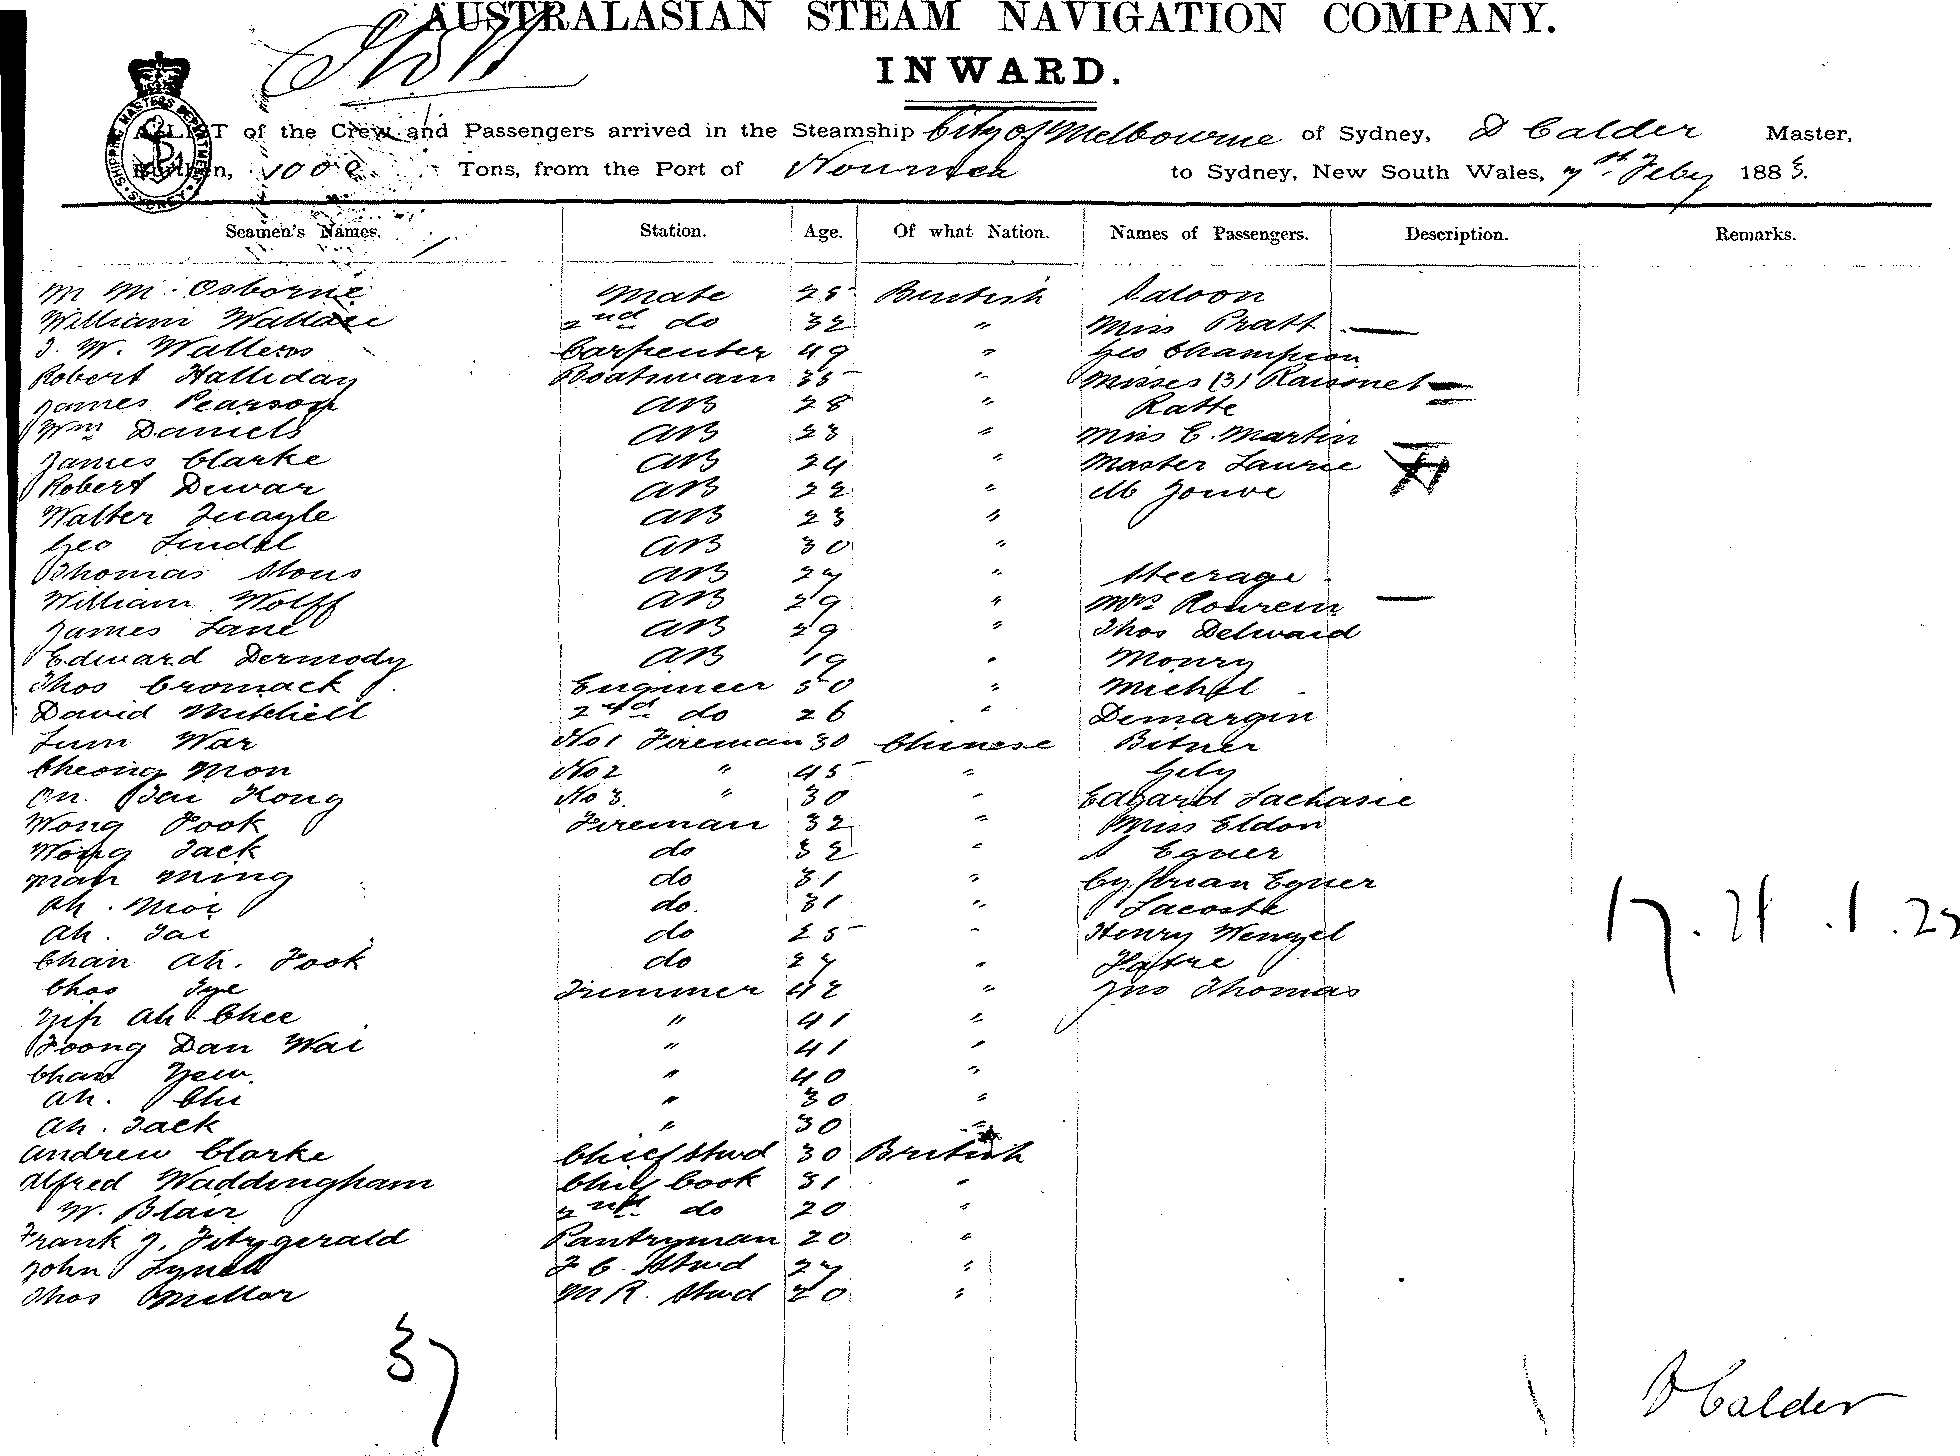 AUSTRALASIAN STEAM NAVIGATION COMPANY.
INWARD.
A LIST of the Crew and Passengers arrived in the Steamship City of Melbourne of Sydney, D Calder Master,
Burthen, 1000 Tons, from the Port of Noumea to Sydney, New South Wales, 7th Feby 1885.
SHIPPING MASTERS DEPARTMENT SYDNEY
Seamen's Names. Station. Age. Of what Nation. Names of Passengers. Description. Remarks.
M M Osborne Mate 25 British Saloon
William Wallace 2nd do 32 " Miss Pratt —
J. W. Walters Carpenter 49 " Geo Champion
Robert Halliday Boatswain 35 " Misses (3) Raisonet
James Pearson AB 28 " Ratte
Wm Daniels AB 23 " Miss C. Martin
James Clarke AB 24 " Master Laurie
Robert Dewar AB 22 " M Jouve
Walter Quayle AB 23 "
Geo Lindel AB 30 "
Thomas Stous AB 27 " Steerage
William Wolff AB 29 " Mrs Rourein —
James Lane AB 29 " Thos Delwaid
Edward Dermody AB 19 " Moury
Thos Cromack Engineer 50 " Michel
David Mitchell 2nd do 26 " Demargin
Lum War No 1 Fireman 30 Chinese Bitner
Cheong Mon No 2 " 45 " Gely
On Tai Hong No 3. " 30 " Edgard Lachasie
Wong Fook Fireman 32 " Miss Eldon
Wong Jack do 32 " Egner
Man Ming do 31 " Cyprian Egner
Ah. Moi do. 31 " Lacoste
Ah. Tai do 25 " Henry Wenzel
Chan Ah. Fook do 27 "
Choo Tye Trimmer 42 " Jno Thomas
Yip Ah Chee " 41 "
Foong Dan Wai " 41 "
Chan Yew. " 40 "
Ah. Chi " 30 "
Ah. Jack " 30 "
Andrew Clarke Chief Stwd 30 British
Alfred Waddingham Chief Cook 31 "
W. Blair 2nd do 20 "
Frank J. Fitzgerald Pantryman 20 "
John Lynch F C. Stwd 27 "
Thos Mellor M R. Stwd 20 "
37
D Calder